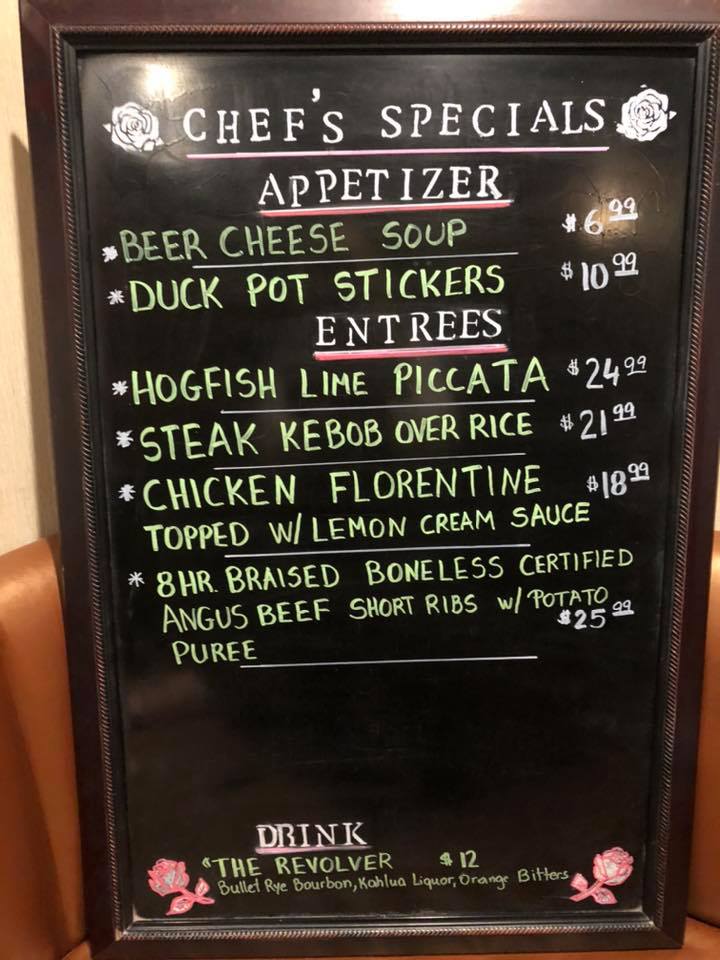 CHEF'S SPECIALS
APPETIZER
*BEER CHEESE SOUP $6.99
*DUCK POT STICKERS $10.99
ENTREES
*HOGFISH LIME PICCATA $24.99
*STEAK KEBOB OVER RICE $21.99
*CHICKEN FLORENTINE $18.99
TOPPED W/ LEMON CREAM SAUCE
* 8HR. BRAISED BONELESS CERTIFIED
ANGUS BEEF SHORT RIBS W/ POTATO
$25.99
PUREE
DRINK
"THE REVOLVER $12
Bullet Rye Bourbon, Kahlua Liquor, Orange Bitters